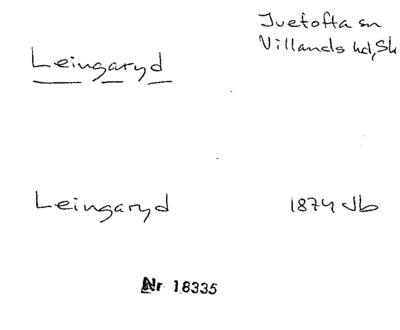 Ivetofta sn
Villands hd, Sk
Leingaryd
Leingaryd 1874 Jb
Nr 18335